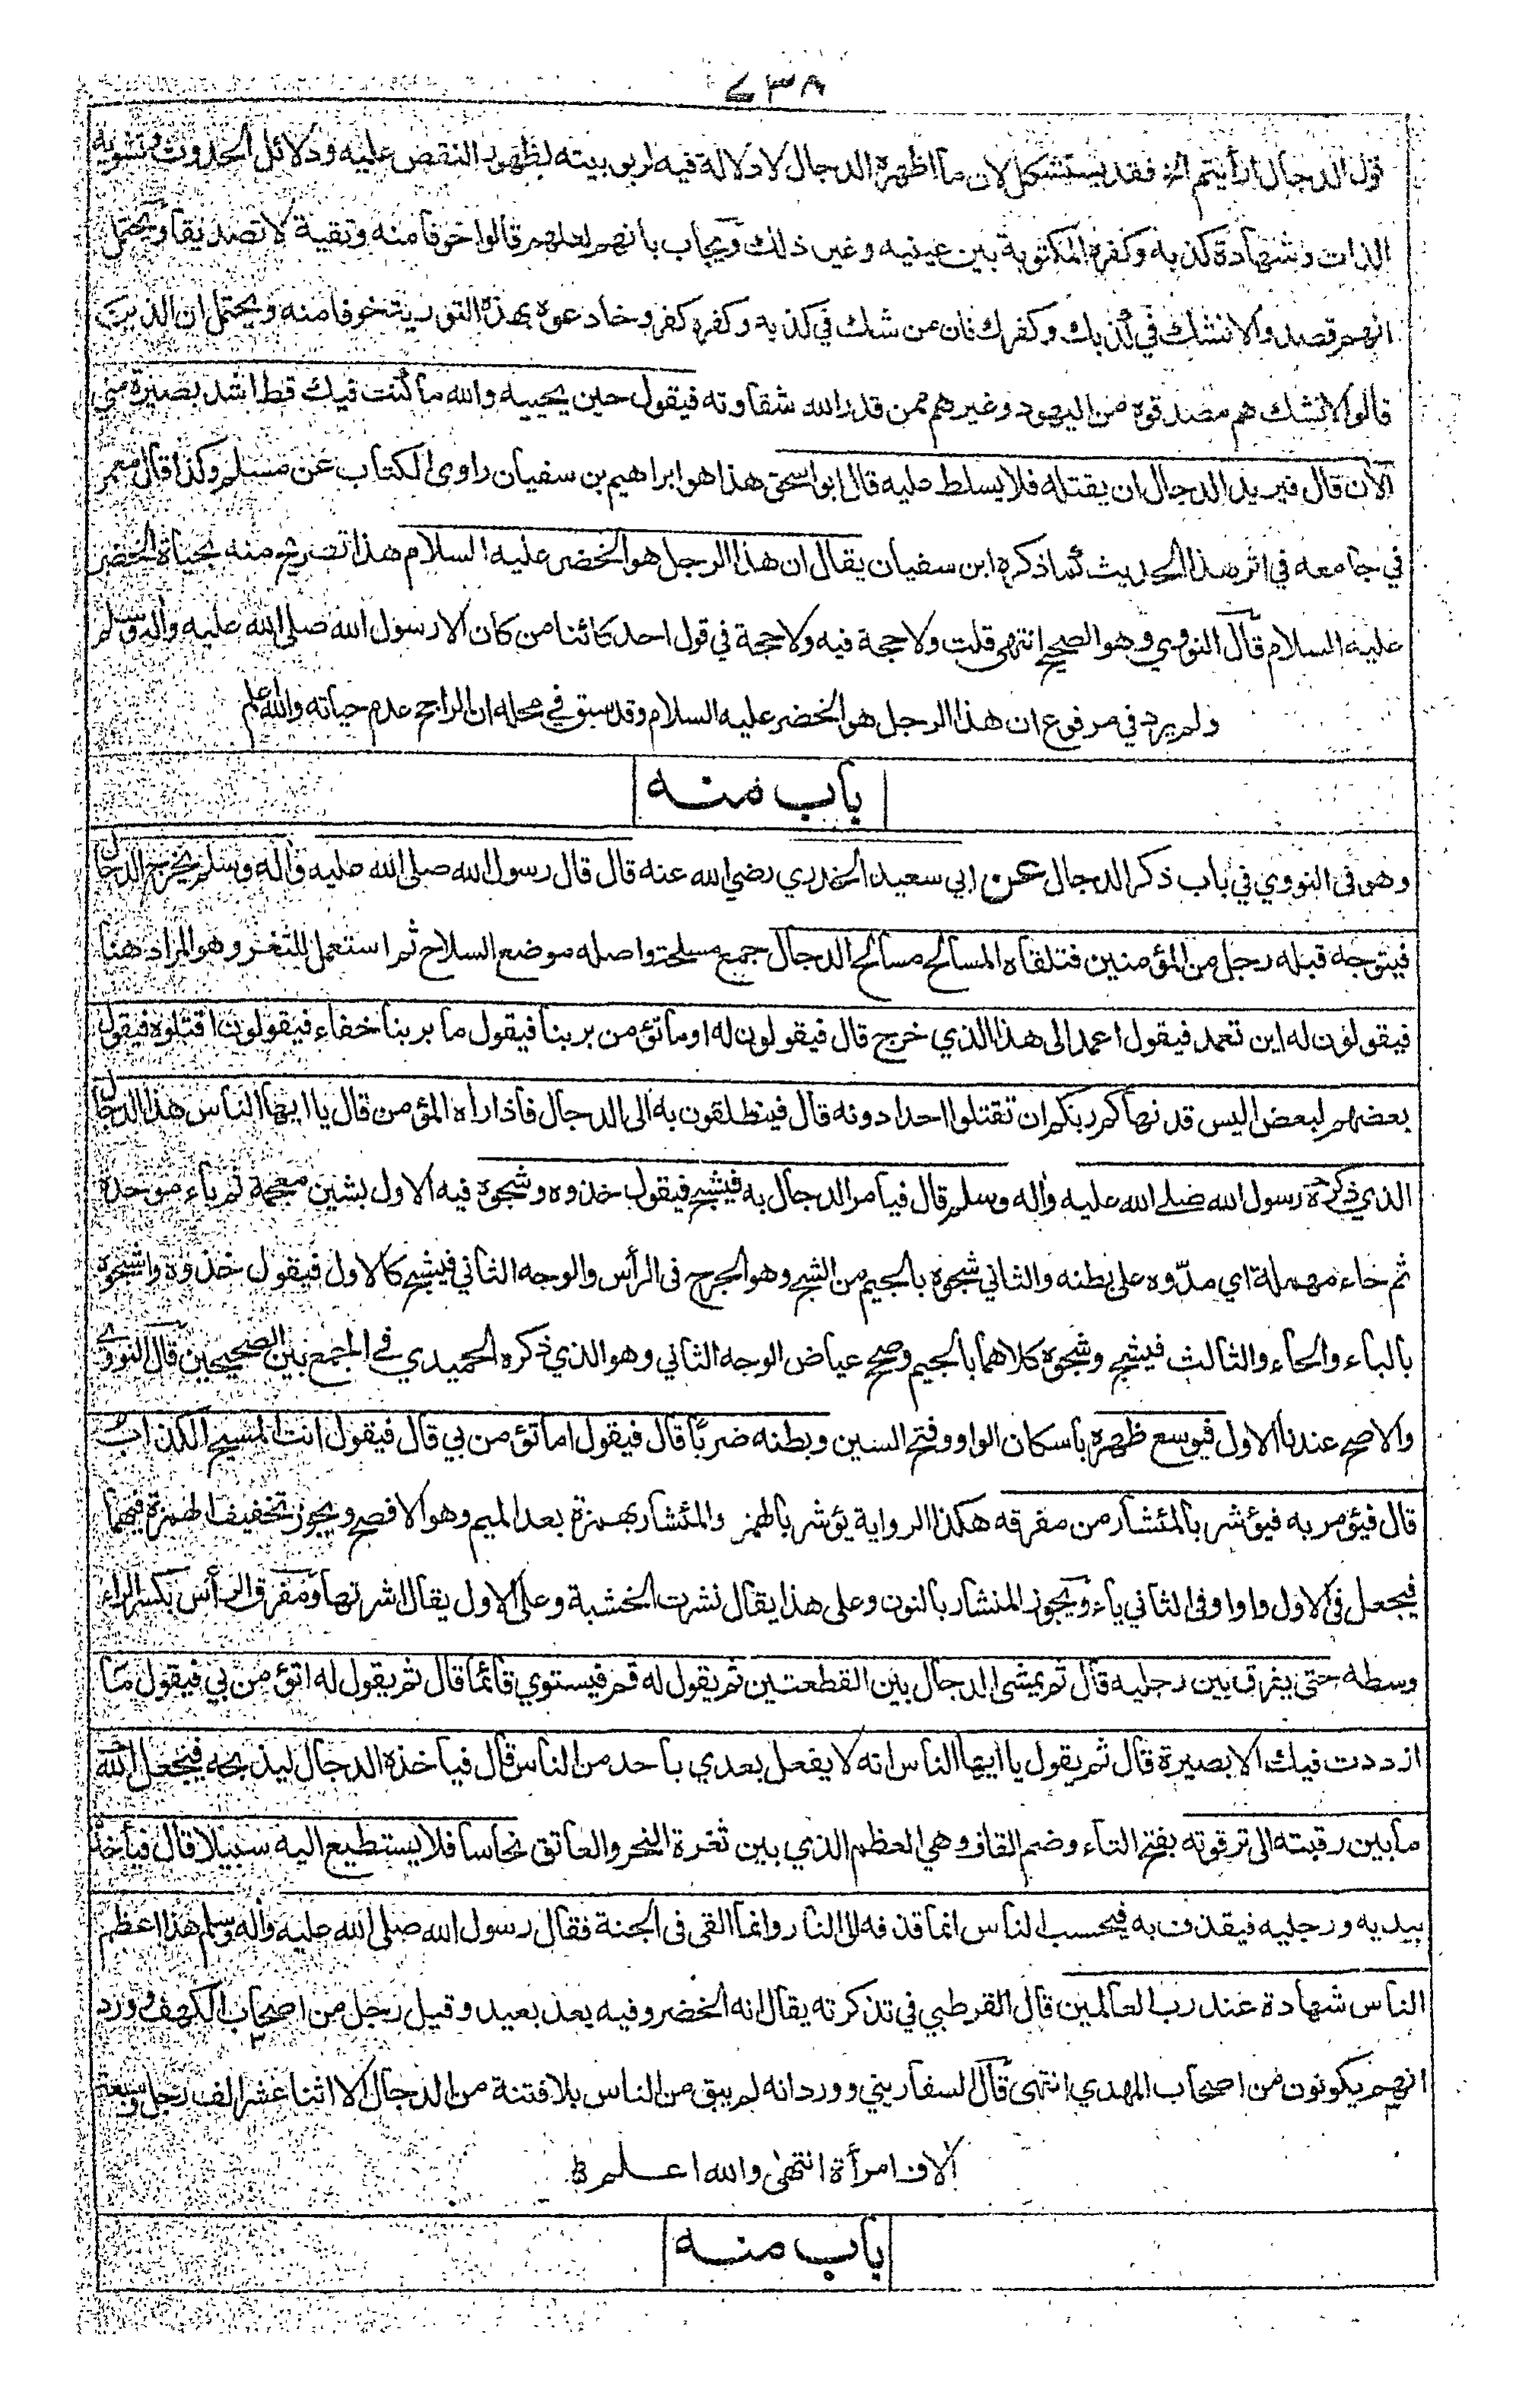 ٧٣٨
قول الدجال ارأيتم الخ فقد يستشكل لان ما اظهره الدجال لا دلالة فيه لربوبيته لظهور النقص عليه ودلائل الحدوث وتشويه
الذات وشهادة كذبه وكفره المكتوبة بين عينيه وغير ذلك ويجاب بانهم لعلهم قالوا خوفا منه وتقية لا تصديقا ويحتمل
انهم قصدوا لا نشك في كذبك وكفرك فان من شك في كذبه وكفره كفر وخادعوه بهذه التورية خوفا منه ويحتمل ان الذين
قالوا لا نشك هم مصدقوه من اليهود وغيرهم ممن قدر الله شقاوته فيقول حين يحييه والله ما كنت فيك قط اشد بصيرة مني
الآن قال فيريد الدجال ان يقتله فلا يسلط عليه قال ابو اسحق هذا هو ابراهيم بن سفيان راوي الكتاب عن مسلم وكذا قال معمر
في جامعه في اثر هذا الحديث كما ذكره ابن سفيان يقال ان هذا الرجل هو الخضر عليه السلام هذا تصريح منه بحياة الخضر
عليه السلام قال النووي وهو الصحيح انتهى قلت ولا حجة فيه ولا حجة في قول احد كائنا من كان الا رسول الله صلى الله عليه واله وسلم
ولم يرد في مرفوع ان هذا الرجل هو الخضر عليه السلام وقد سبق في محله ان الراجح عدم حياته والله اعلم
باب منه
وهو في النووي في باب ذكر الدجال عن ابي سعيد الخدري رضي الله عنه قال قال رسول الله صلى الله عليه واله وسلم يخرج الدجال
فيتوجه قبله رجل من المؤمنين فتلقاه المسالح مسالح الدجال جمع مسلحة واصله موضع السلاح ثم استعمل للثغر وهو المراد هنا
فيقولون له اين تعمد فيقول اعمد الى هذا الذي خرج قال فيقولون له او ما تؤمن بربنا فيقول ما بربنا خفاء فيقولون اقتلوه فيقول
بعضهم لبعض اليس قد نهاكم ربكم ان تقتلوا احدا دونه قال فينطلقون به الى الدجال فاذا راه المؤمن قال يا ايها الناس هذا الدجال
الذي ذكره رسول الله صلى الله عليه واله وسلم قال فيامر الدجال به فيشبح فيقول خذوه وشجوه فيه الاول بشين معجمة ثم باء موحدة
ثم حاء مهملة اي مدّوه على بطنه والثاني شجوه بالجيم من الشج وهو الجرح في الرأس والوجه الثاني فيشبح كالاول فيقول خذوه واشبحوه
بالباء والحاء والثالث فيشج وشجوه كلاهما بالجيم وصحح عياض الوجه الثاني وهو الذي ذكره الحميدي في الجمع بين الصحيحين قال النووي
والاصح عندنا الاول فيوسع ظهره باسكان الواو وفتح السين وبطنه ضربًا قال فيقول اما تؤمن بي قال فيقول انت المسيح الكذاب
قال فيؤمر به فيؤشر بالمئشار من مفرقه هكذا الرواية يؤشر بالهمز والمئشار بهمزة بعد الميم وهو الافصح ويجوز تخفيف الهمزة فيهما
فيجعل في الاول واوا وفي الثاني ياء ويجوز المنشار بالنون وعلى هذا يقال نشرت الخشبة وعلى الاول يقال اشرتها ومفرق الرأس بكسر الراء
وسطه حتى يفرق بين رجليه قال ثم يمشي الدجال بين القطعتين ثم يقول له قم فيستوي قائما قال ثم يقول له اتؤمن بي فيقول ما
ازددت فيك الا بصيرة قال ثم يقول يا ايها الناس انه لا يفعل بعدي باحد من الناس قال فياخذه الدجال ليذبحه فيجعل الله
ما بين رقبته الى ترقوته بفتح التاء وضم القاف وهي العظم الذي بين ثغرة النحر والعاتق نحاسا فلا يستطيع اليه سبيلا قال فياخذ
بيديه ورجليه فيقذف به فيحسب الناس انما قذفه الى النار وانما القي في الجنة فقال رسول الله صلى الله عليه واله وسلم هذا اعظم
الناس شهادة عند رب العالمين قال القرطبي في تذكرته يقال انه الخضر وفيه بعد بعيد وقيل رجل من اصحاب الكهف وورد
انهم يكونون من اصحاب المهدي انتهى قال السفاريني وورد انه لم يبق من الناس بلا فتنة من الدجال الا اثنا عشر الف رجل وسبعة
آلاف امرأة انتهى والله اعلم
باب منه